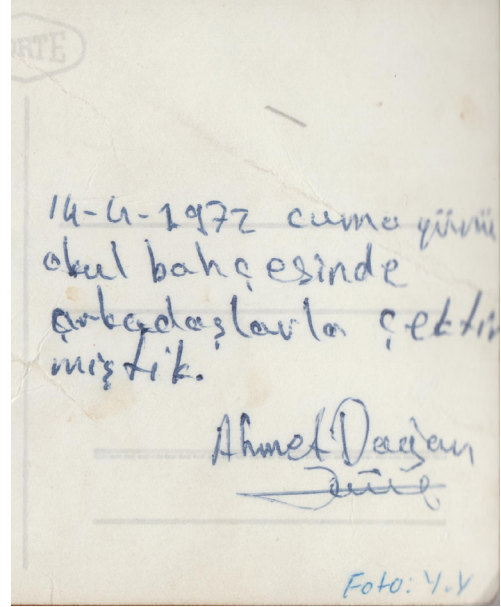 ORTE
14-4-1972 cuma günü
okul bahçesinde
arkadaşlarla çektir
miştik.
Ahmet Doğan
Foto: Y.Y